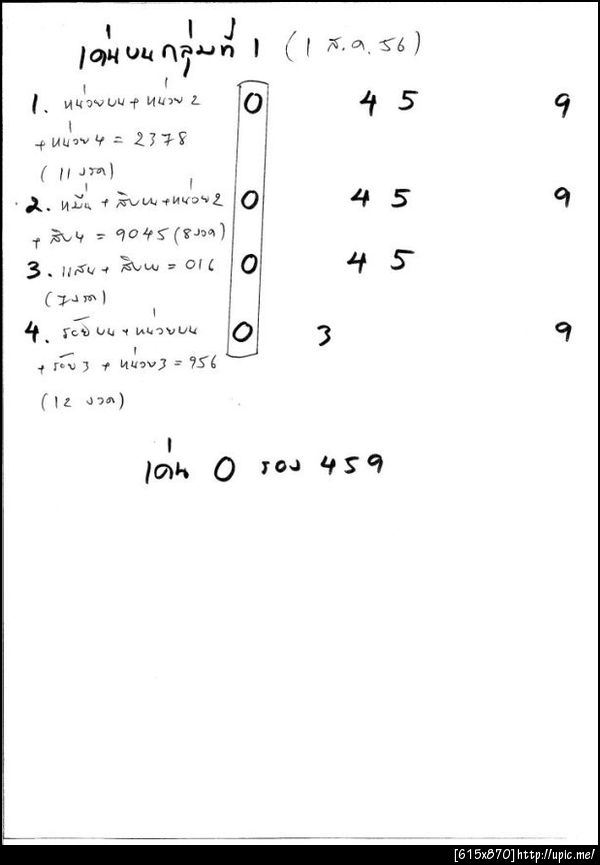 เด่นบนกลุ่มที่ 1 (1 ส.ค. 56)
1. หน่วยบน + หน่วย 2 0 4 5 9
+ หน่วย 4 = 2378
(11 งวด)
2. หมื่น + สิบบน + หน่วย 2 0 4 5 9
+ สิบ 4 = 9045 (8 งวด)
3. แสน + สิบบน = 016 0 4 5
(7 งวด)
4. ร้อยบน + หน่วยบน 0 3 9
+ ร้อย 3 + หน่วย 3 = 956
(12 งวด)
เด่น 0 รอง 459
[615x870]http://upic.me/